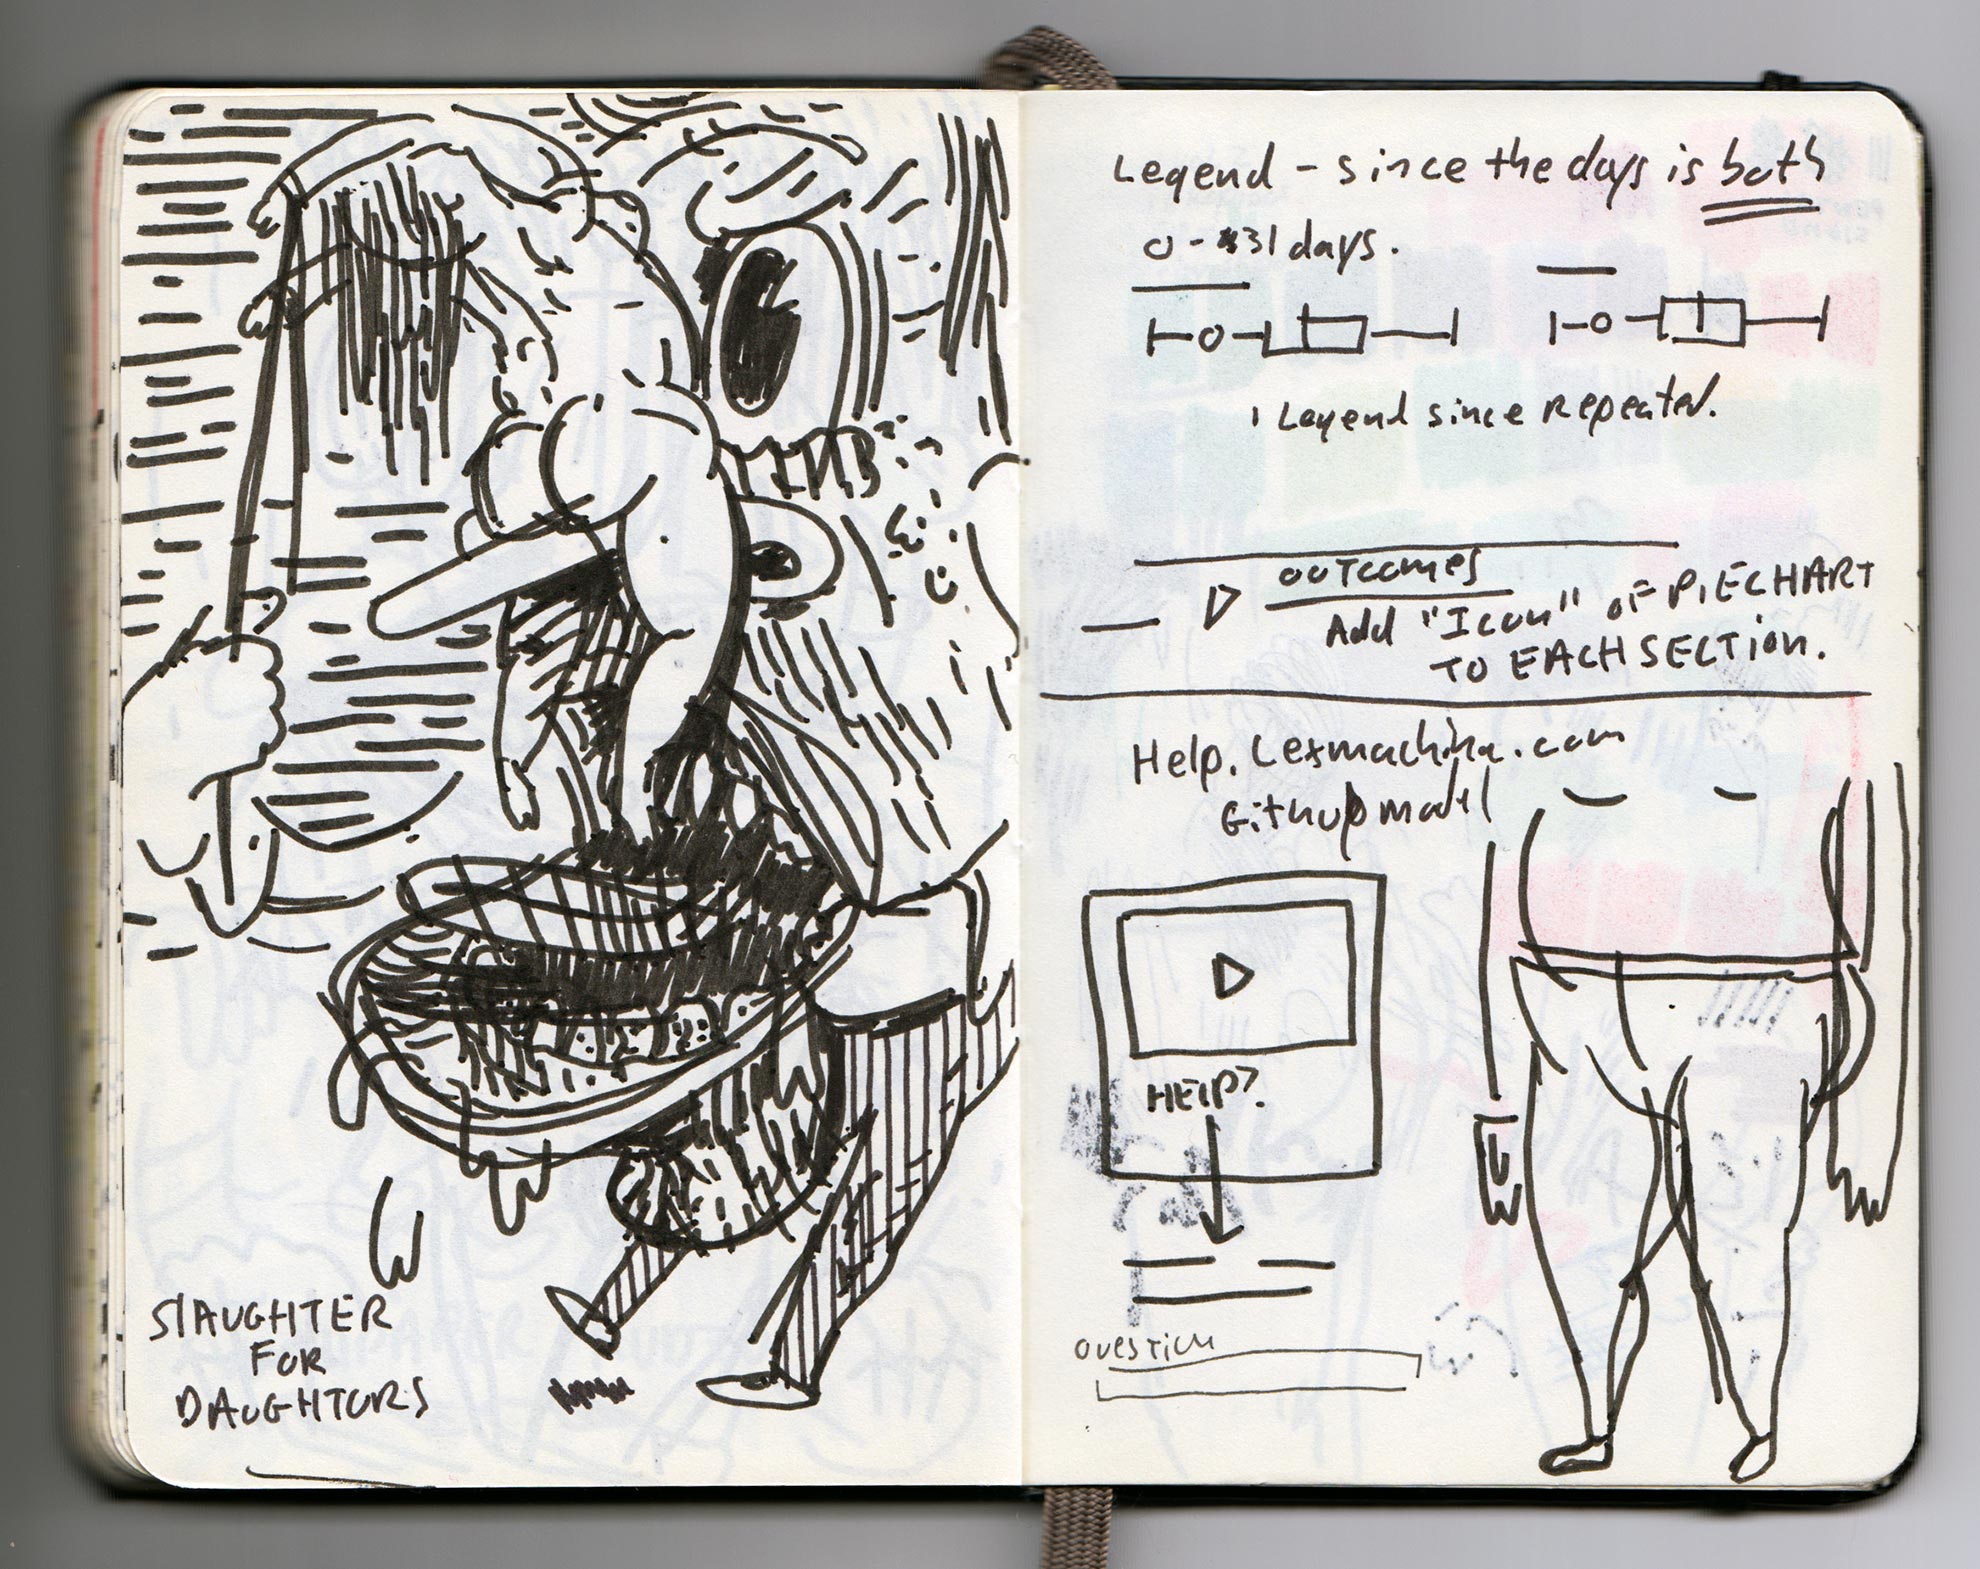 SLAUGHTER
FOR
DAUGHTORS
Legend - since the days is both
0 - 31 days.
1 Legend since Repeated.
OUTCOMES
Add "Icon" OF PIECHART
TO EACH SECTION.
Help.Lexmachina.com
Github model
HELP?
QUESTION